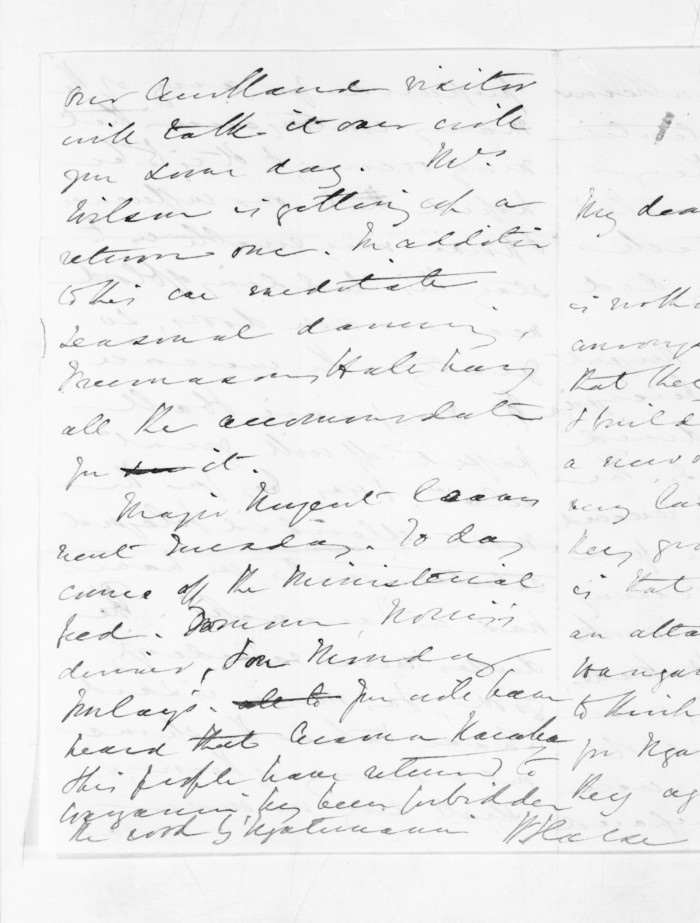 our Auckland visitor
will talk it over with
you some day. Mrs.
Wilson is getting up a
return one. In addition
to this we meditate
seasonal dancing,
Freemasons Hall having
all the accommodation
for it.
Major Nugent leaves
next Tuesday. To day
comes off the Ministerial
feed. Tomorrow,
dinner, & on Monday
you will have
heard that Karaka
& his people have returned to
been forbidden
the road by
My dea
is noth
that the
& build
a new
very la
they gr
is that
an atta
Wangan
to think
for Nga
they ag